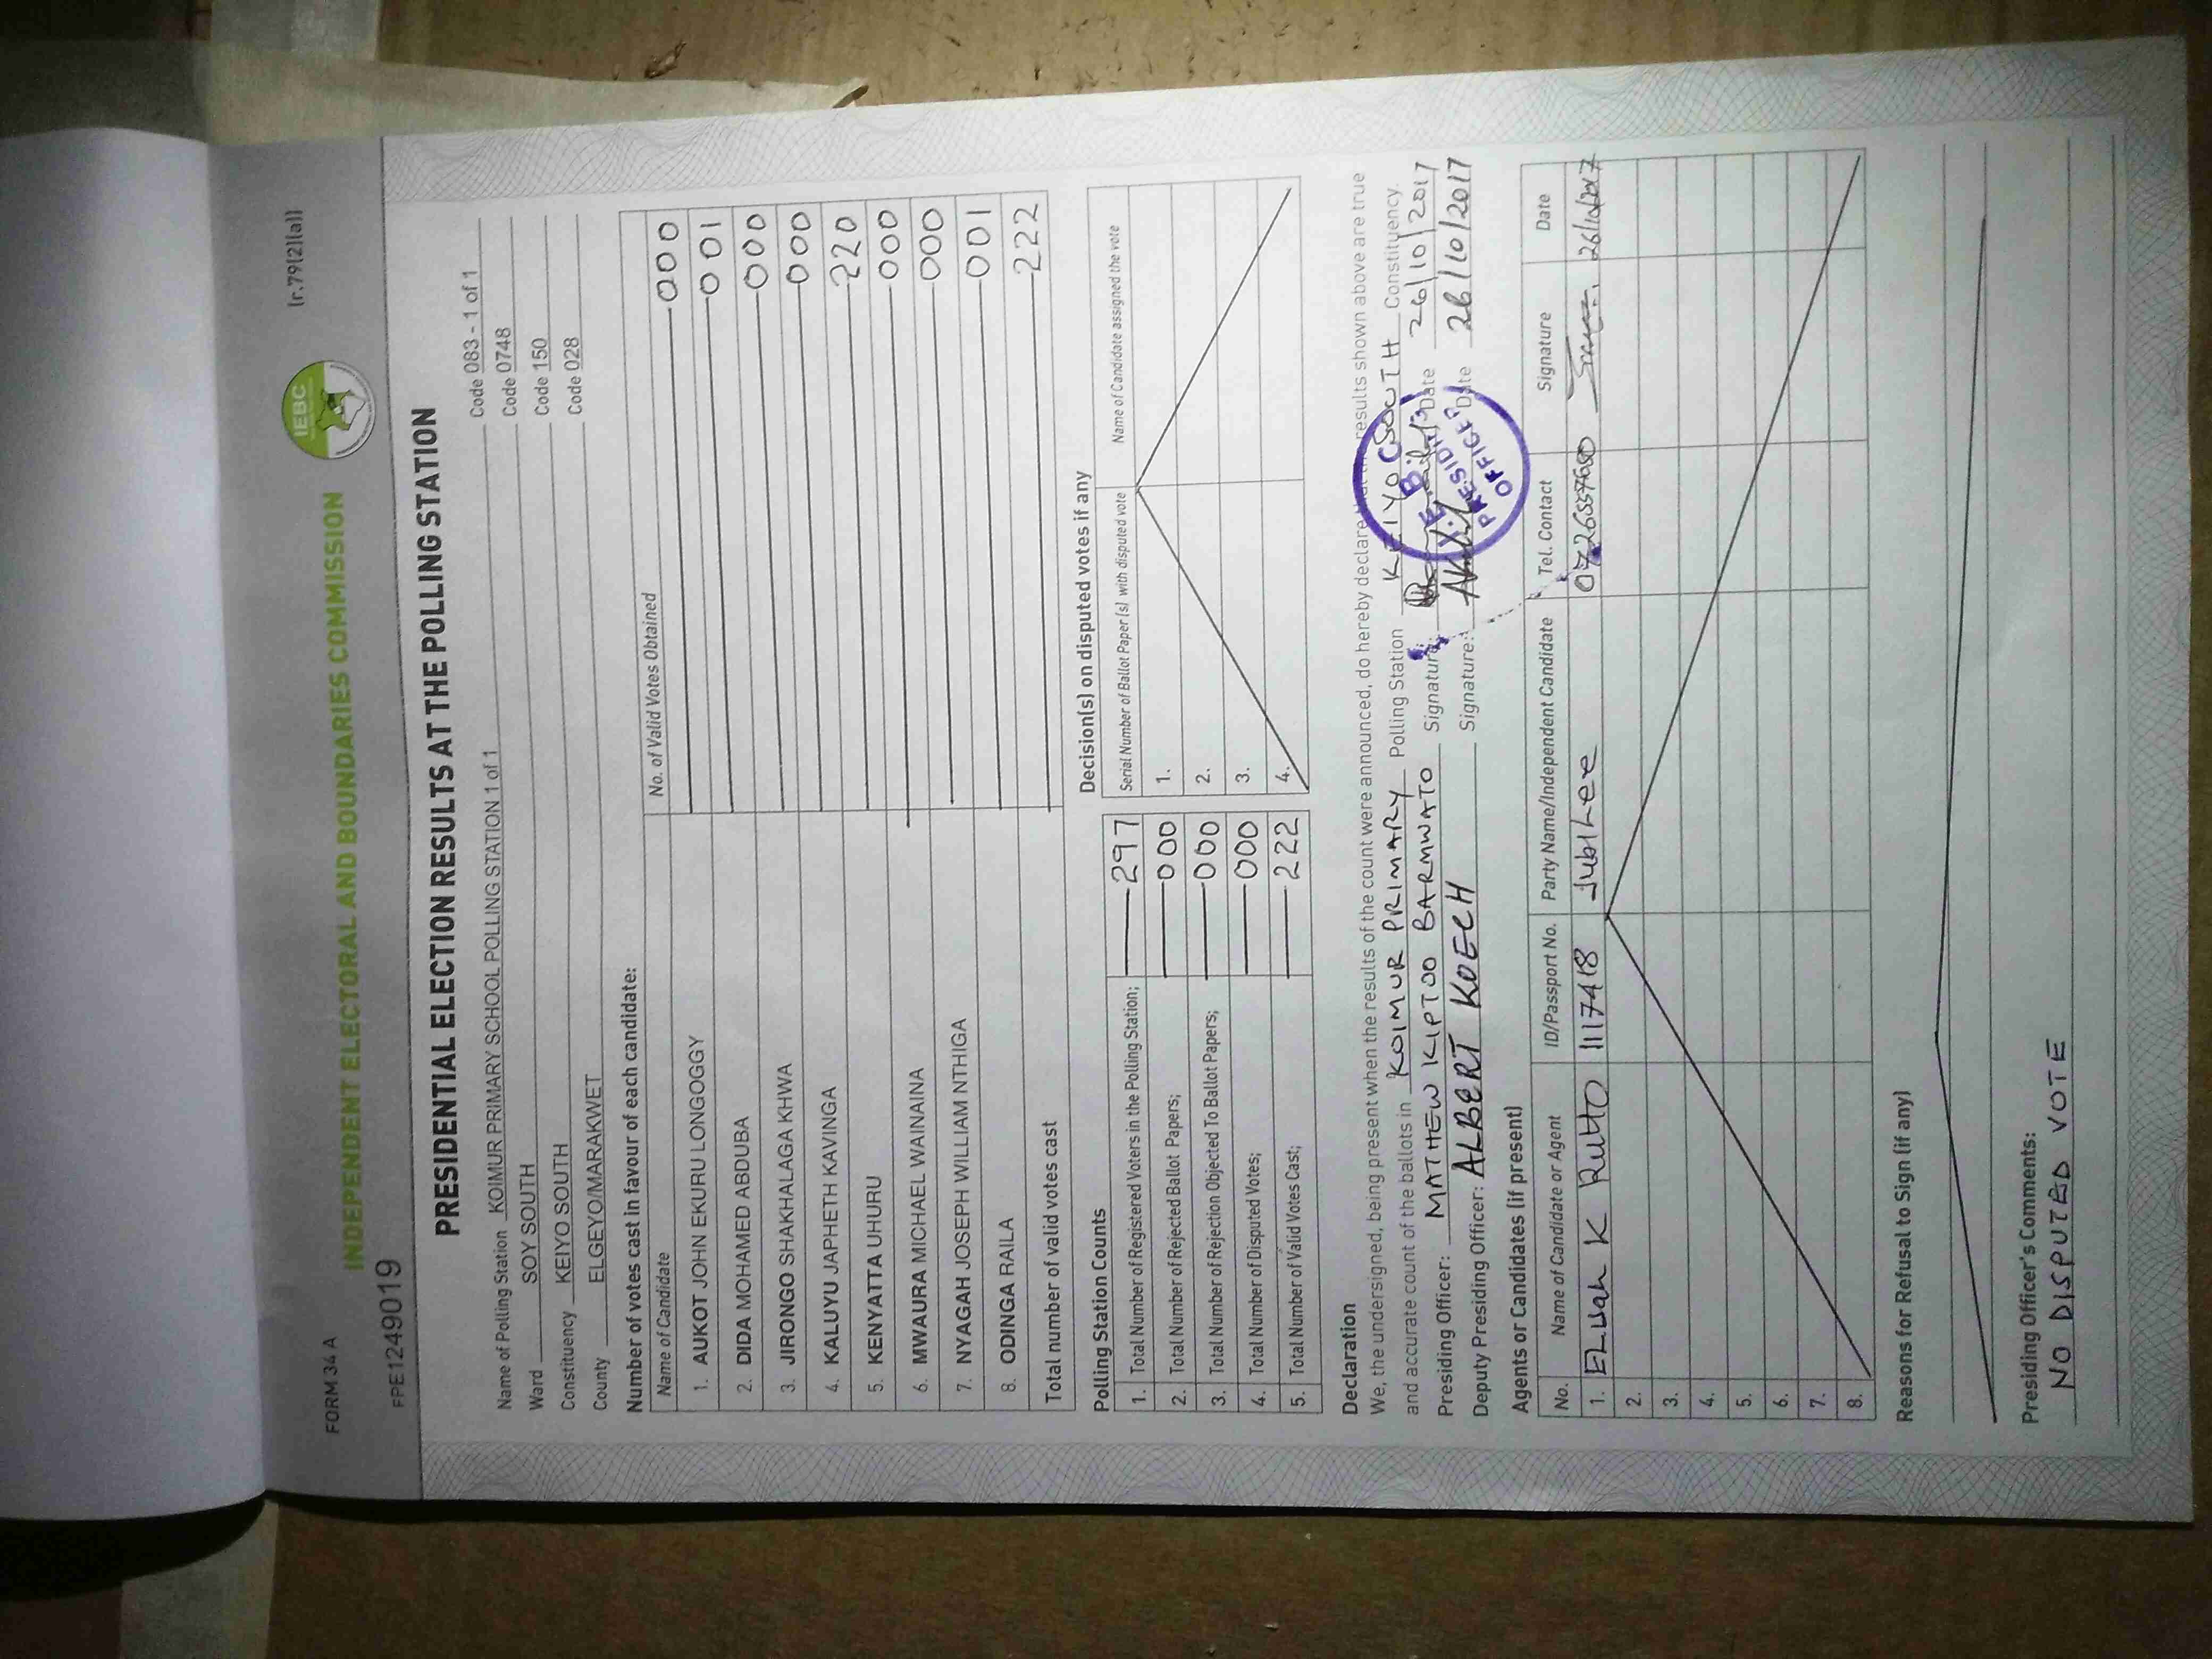 FORM 34 A
(r.79(2)(a))
IEBC
INDEPENDENT ELECTORAL AND BOUNDARIES COMMISSION
FPE1249019
PRESIDENTIAL ELECTION RESULTS AT THE POLLING STATION
Name of Polling Station KOIMUR PRIMARY SCHOOL POLLING STATION 1 of 1 Code 083 - 1 of 1
Ward SOY SOUTH Code 0748
Constituency KEIYO SOUTH Code 150
County ELGEYO/MARAKWET Code 028
Number of votes cast in favour of each candidate:
Name of Candidate No. of Valid Votes Obtained
1. AUKOT JOHN EKURU LONGOGGY 000
2. DIDA MOHAMED ABDUBA 001
3. JIRONGO SHAKHALAGA KHWA 000
4. KALUYU JAPHETH KAVINGA 000
5. KENYATTA UHURU 220
6. MWAURA MICHAEL WAINAINA 000
7. NYAGAH JOSEPH WILLIAM NTHIGA 000
8. ODINGA RAILA 001
Total number of valid votes cast 222
Polling Station Counts
1. Total Number of Registered Voters in the Polling Station; 297
2. Total Number of Rejected Ballot Papers; 000
3. Total Number of Rejection Objected To Ballot Papers; 000
4. Total Number of Disputed Votes; 000
5. Total Number of Valid Votes Cast; 222
Decision(s) on disputed votes if any
Serial Number of Ballot Paper (s) with disputed vote Name of Candidate assigned the vote
1.
2.
3.
4.
Declaration
We, the undersigned, being present when the results of the count were announced, do hereby declare results shown above are true
and accurate count of the ballots in KOIMUR PRIMARY Polling Station KEIYO SOUTH Constituency.
Presiding Officer: MATHEW KIPTOO BARMWATO Signature: Date 26/10/2017
Deputy Presiding Officer: ALBERT KOECH Signature: Date 26/10/2017
PRESIDING OFFICER
Agents or Candidates (if present)
No. Name of Candidate or Agent ID/Passport No. Party Name/Independent Candidate Tel. Contact Signature Date
1. ELijah K Rutto 1117418 Jubilee 26/10/2017
2.
3.
4.
5.
6.
7.
8.
Reasons for Refusal to Sign (if any)
Presiding Officer's Comments:
NO DISPUTED VOTE